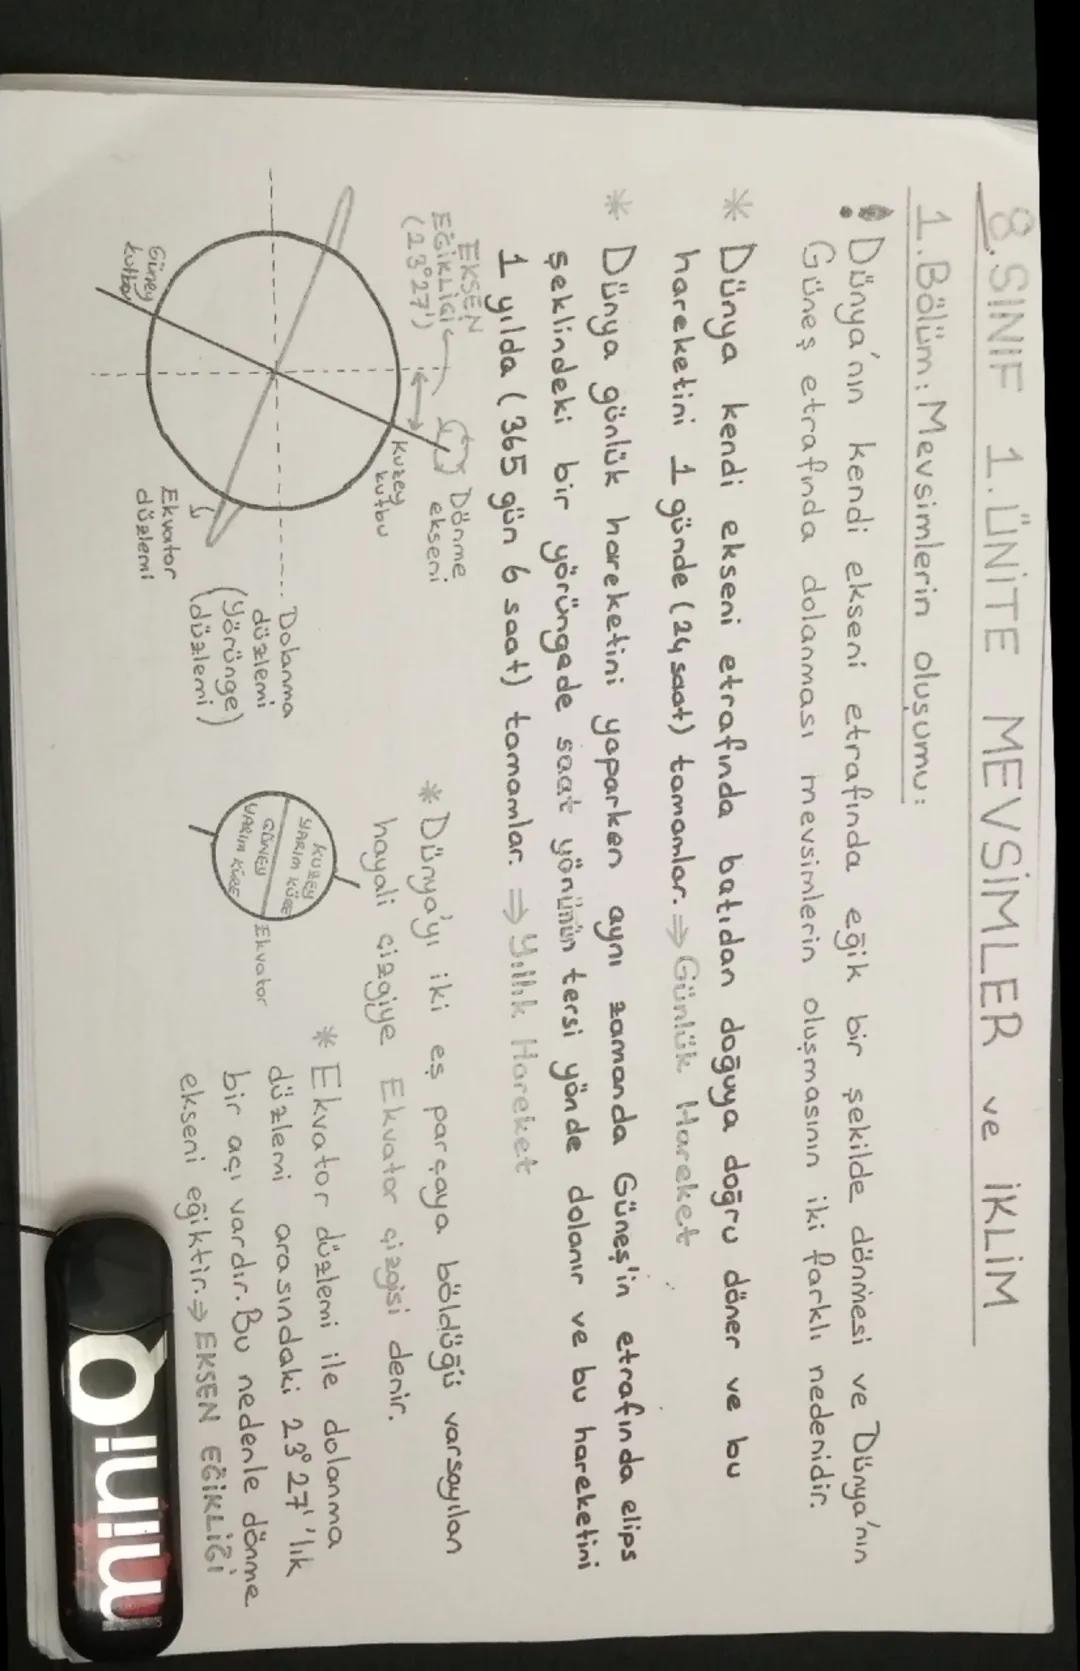 8.SINIF 1.ÜNİTE MEVSİMLER ve İKLİM
1.Bölüm: Mevsimlerin oluşumu:
! Dünya'nın kendi ekseni etrafında eğik bir şekilde dönmesi ve Dünya'nın
Güneş etrafında dolanması mevsimlerin oluşmasının iki farklı nedenidir.
* Dünya kendi ekseni etrafında batıdan doğuya doğru döner ve bu
hareketini 1 günde (24 saat) tamamlar. ⇒ Günlük Hareket
* Dünya günlük hareketini yaparken aynı zamanda Güneş'in etrafında elips
şeklindeki bir yörüngede saat yönünün tersi yönde dolanır ve bu hareketini
1 yılda (365 gün 6 saat) tamamlar. ⇒ Yıllık Hareket
EKSEN
EĞİKLİĞİ
(23°27')
Dönme
ekseni
Kuzey
kutbu
Dolanma
düzlemi
(yörünge
düzlemi)
Ekvator
düzlemi
Güney
kutbu
* Dünya'yı iki eş parçaya böldüğü varsayılan
hayali çizgiye Ekvator çizgisi denir.
KUZEY
YARIM KÜRE
GÜNEY
YARIM KÜRE
Ekvator
* Ekvator düzlemi ile dolanma
düzlemi arasındaki 23°27''lık
bir açı vardır. Bu nedenle dönme
ekseni eğiktir. ⇒ EKSEN EĞİKLİĞİ
miniQ